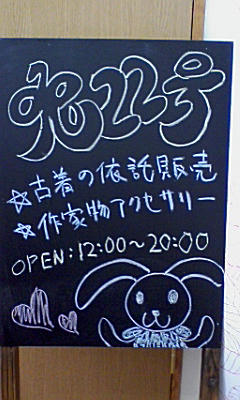 兎22号
☆古着の依託販売
☆作家物アクセサリー
OPEN:12:00~20:00